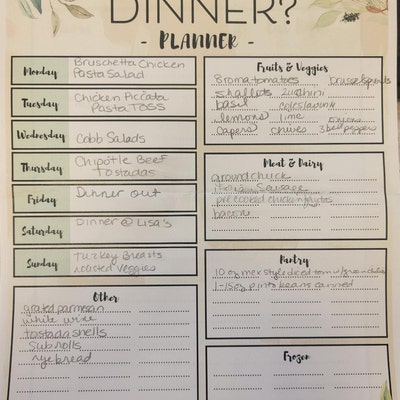 DINNER?
- PLANNER -
Monday
Bruschetta Chicken
Pasta Salad
Tuesday
Chicken Piccata
Pasta Toss
Wednesday
Cobb Salads
Thursday
Chipotle Beef
Tostadas
Friday
Dinner out
Saturday
Dinner @ Lisa's
Sunday
Turkey Breasts
roasted veggies
Other
grated parmesan
white wine
tostada shells
sub rolls
rye bread
Fruits & Veggies
8 roma tomatoes brussel sprouts
shallots zucchini
basil coleslaw
lemons lime
capers chives 3 bell pepper
Meat & Dairy
ground chuck
Sausage
pre cooked chicken
bacon
Pantry
10 oz mex style diced tom w/ green chilies
1-15oz pinto beans canned
Frozen